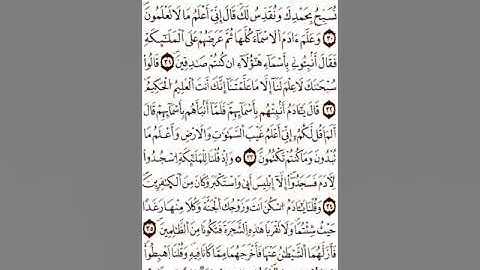 نُسَبِّحُ بِحَمْدِكَ وَنُقَدِّسُ لَكَ قَالَ إِنِّي أَعْلَمُ مَا لَا تَعْلَمُونَ
٣٠ وَعَلَّمَ ءَادَمَ الْأَسْمَاءَ كُلَّهَا ثُمَّ عَرَضَهُمْ عَلَى الْمَلَٰئِكَةِ
فَقَالَ أَنۢبِـُٔونِي بِأَسْمَاءِ هَٰؤُلَاءِ إِن كُنتُمْ صَٰدِقِينَ ٣١ قَالُوا
سُبْحَٰنَكَ لَا عِلْمَ لَنَا إِلَّا مَا عَلَّمْتَنَا إِنَّكَ أَنتَ الْعَلِيمُ الْحَكِيمُ
٣٢ قَالَ يَٰـَٔادَمُ أَنۢبِئْهُم بِأَسْمَائِهِمْ فَلَمَّا أَنۢبَأَهُم بِأَسْمَائِهِمْ قَالَ
أَلَمْ أَقُل لَّكُمْ إِنِّي أَعْلَمُ غَيْبَ السَّمَٰوَٰتِ وَالْأَرْضِ وَأَعْلَمُ مَا
تُبْدُونَ وَمَا كُنتُمْ تَكْتُمُونَ ٣٣ وَإِذْ قُلْنَا لِلْمَلَٰئِكَةِ اسْجُدُوا
لِـَٔادَمَ فَسَجَدُوا إِلَّا إِبْلِيسَ أَبَىٰ وَاسْتَكْبَرَ وَكَانَ مِنَ الْكَٰفِرِينَ
٣٤ وَقُلْنَا يَٰـَٔادَمُ اسْكُنْ أَنتَ وَزَوْجُكَ الْجَنَّةَ وَكُلَا مِنْهَا رَغَدًا
حَيْثُ شِئْتُمَا وَلَا تَقْرَبَا هَٰذِهِ الشَّجَرَةَ فَتَكُونَا مِنَ الظَّٰلِمِينَ ٣٥
فَأَزَلَّهُمَا الشَّيْطَٰنُ عَنْهَا فَأَخْرَجَهُمَا مِمَّا كَانَا فِيهِ وَقُلْنَا اهْبِطُوا